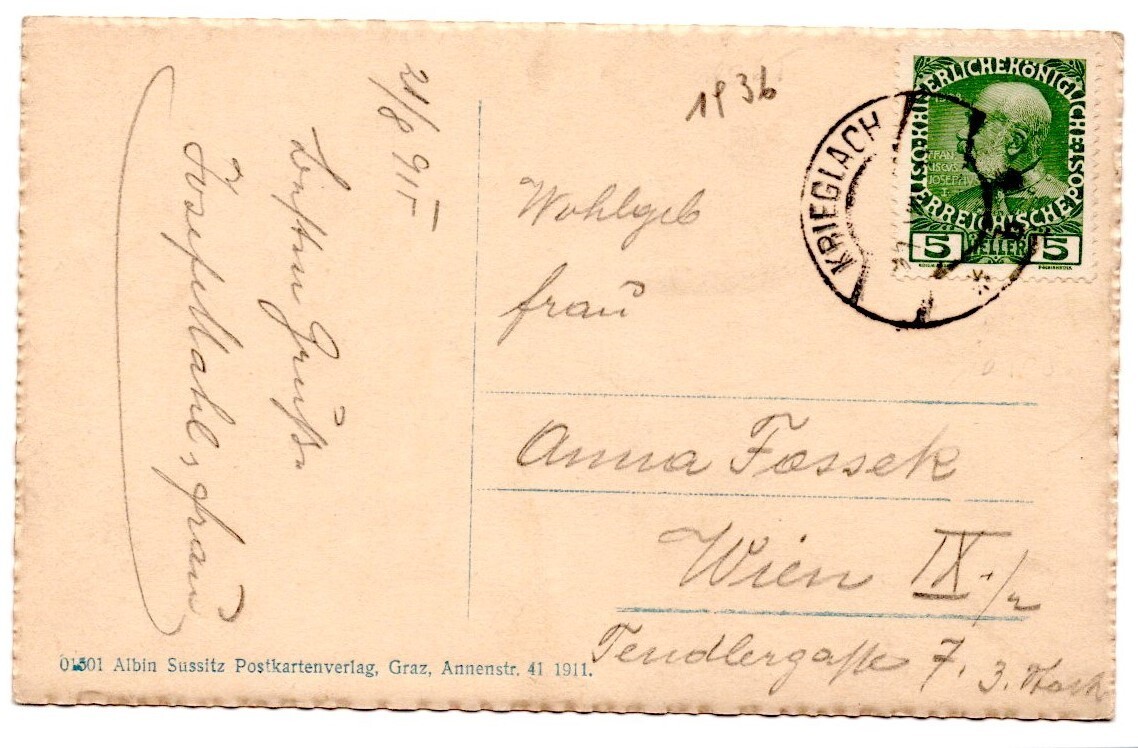 21/8 911
Besten Gruß
Josef Mahl, frau
1936
Wohlgeb
frau
Anna Fossek
Wien IX
Tendlergasse 7. 3. Stock
KRIEGLACH
KAISERLICHEKÖNIGLICHE
ÖSTERREICHISCHE POST
FRAN
CISCVS
JOSEPH
I
5 HELLER 5
01501 Albin Sussitz Postkartenverlag, Graz, Annenstr. 41 1911.